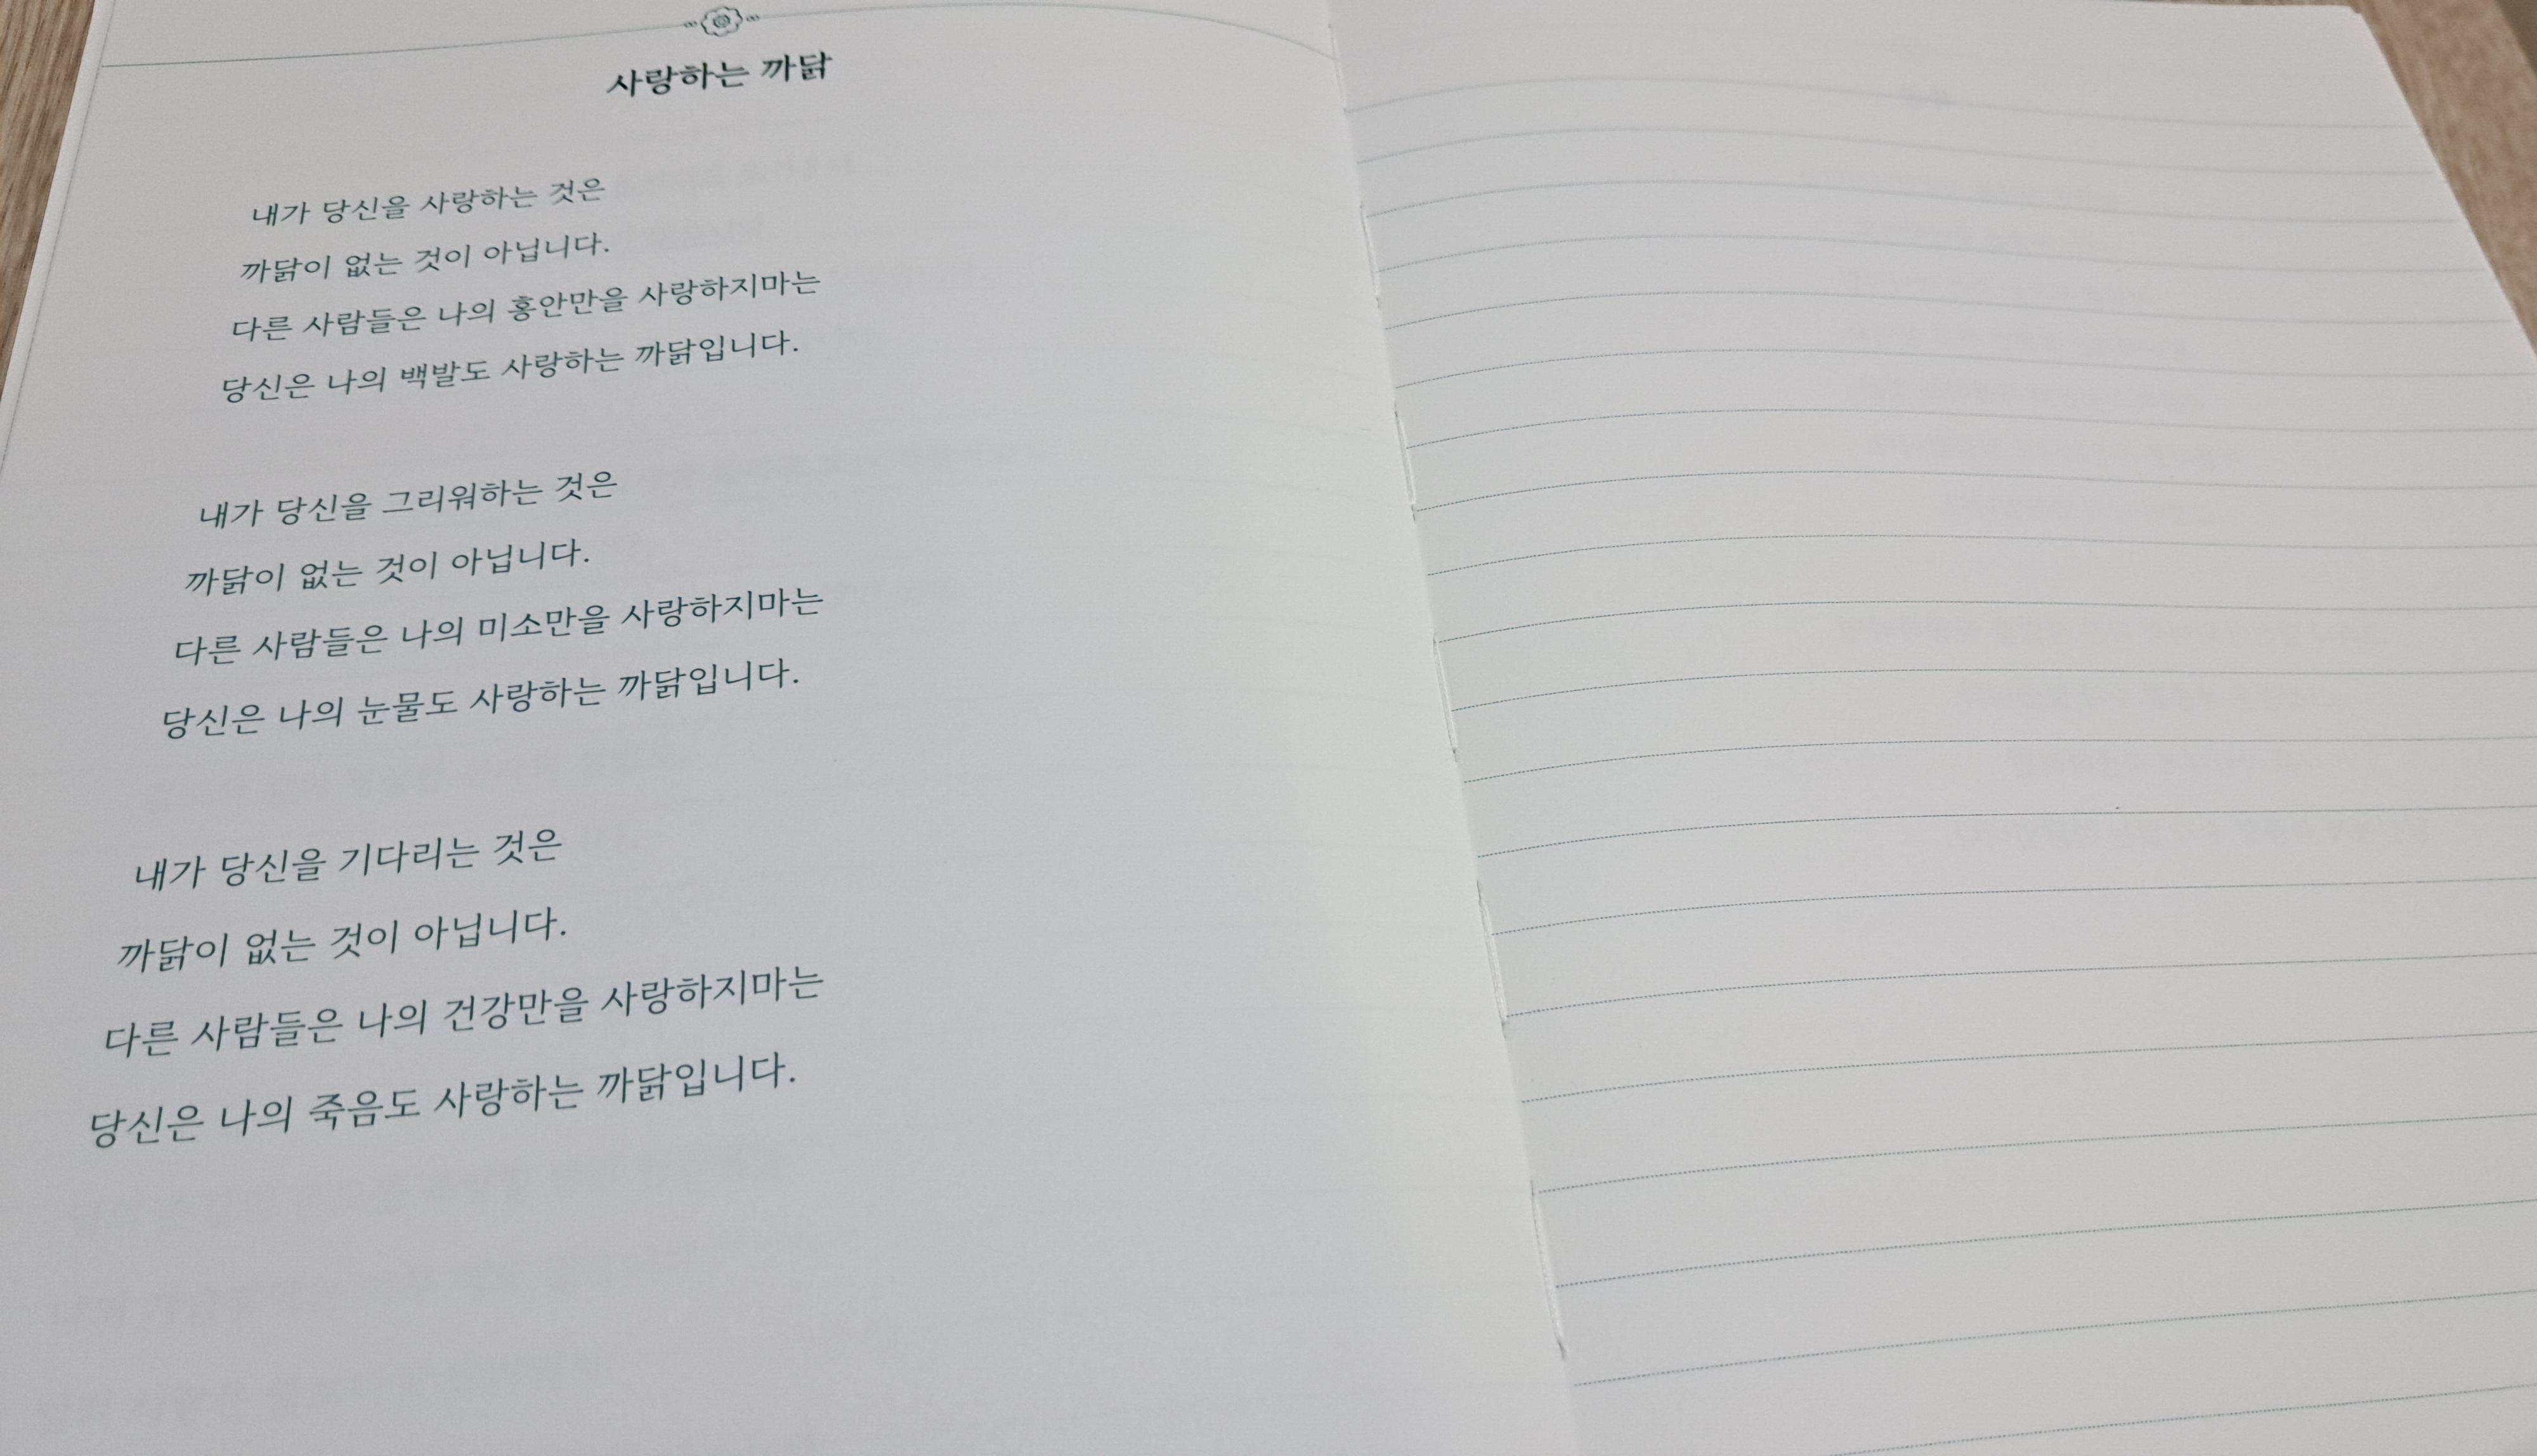 사랑하는 까닭
내가 당신을 사랑하는 것은
까닭이 없는 것이 아닙니다.
다른 사람들은 나의 홍안만을 사랑하지마는
당신은 나의 백발도 사랑하는 까닭입니다.
내가 당신을 그리워하는 것은
까닭이 없는 것이 아닙니다.
다른 사람들은 나의 미소만을 사랑하지마는
당신은 나의 눈물도 사랑하는 까닭입니다.
내가 당신을 기다리는 것은
까닭이 없는 것이 아닙니다.
다른 사람들은 나의 건강만을 사랑하지마는
당신은 나의 죽음도 사랑하는 까닭입니다.